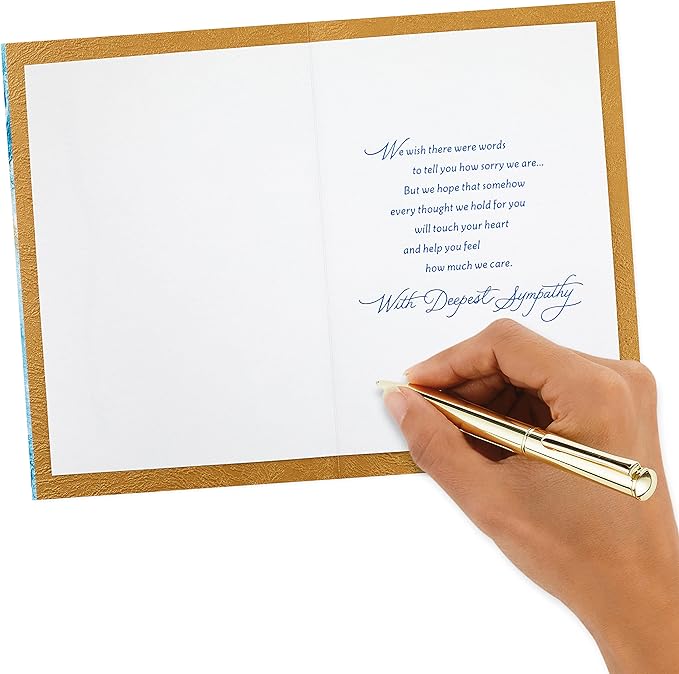 We wish there were words
to tell you how sorry we are...
But we hope that somehow
every thought we hold for you
will touch your heart
and help you feel
how much we care.
With Deepest Sympathy